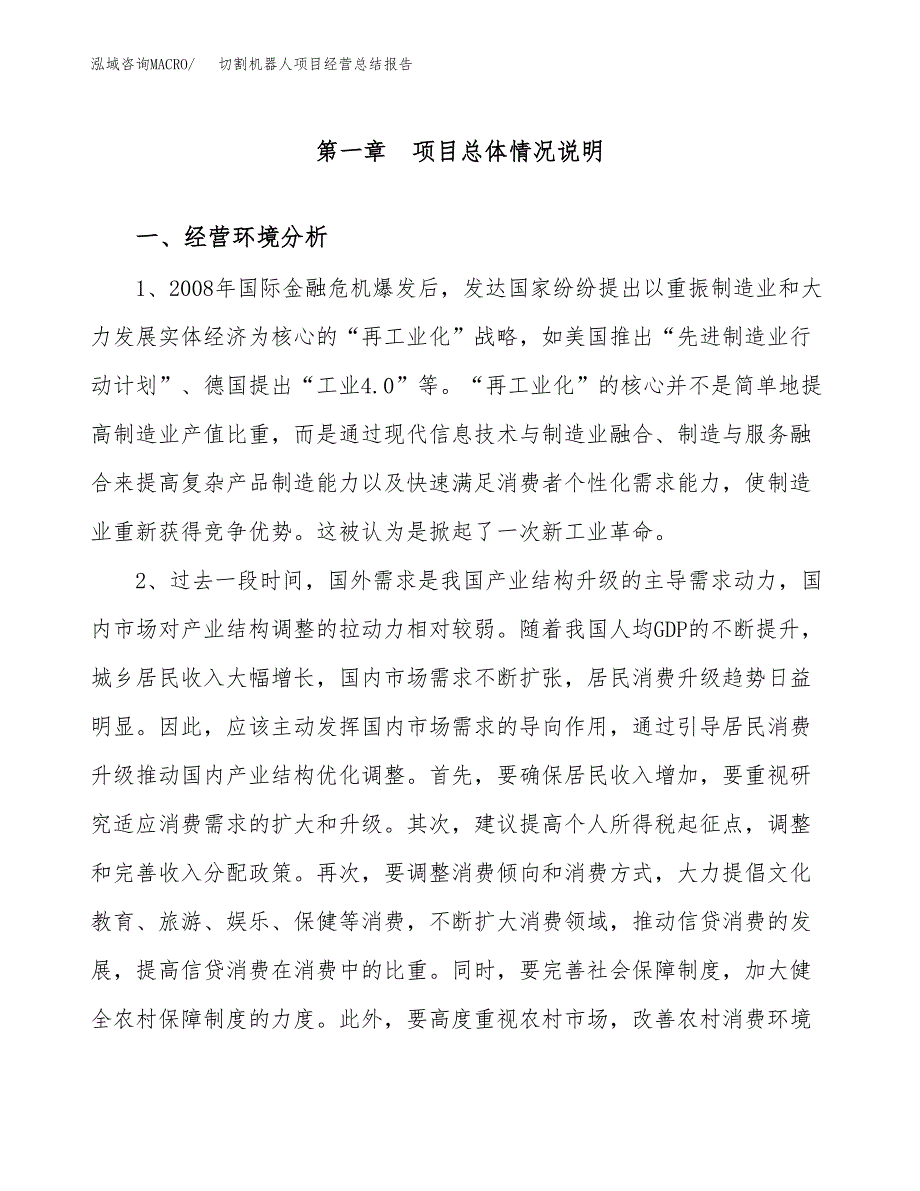 泓域咨询MACRO/ 切割机器人项目经营总结报告
第一章 项目总体情况说明
一、经营环境分析
1、2008年国际金融危机爆发后，发达国家纷纷提出以重振制造业和大
力发展实体经济为核心的“再工业化”战略，如美国推出“先进制造业行
动计划”、德国提出“工业4.0”等。“再工业化”的核心并不是简单地提
高制造业产值比重，而是通过现代信息技术与制造业融合、制造与服务融
合来提高复杂产品制造能力以及快速满足消费者个性化需求能力，使制造
业重新获得竞争优势。这被认为是掀起了一次新工业革命。
2、过去一段时间，国外需求是我国产业结构升级的主导需求动力，国
内市场对产业结构调整的拉动力相对较弱。随着我国人均GDP的不断提升，
城乡居民收入大幅增长，国内市场需求不断扩张，居民消费升级趋势日益
明显。因此，应该主动发挥国内市场需求的导向作用，通过引导居民消费
升级推动国内产业结构优化调整。首先，要确保居民收入增加，要重视研
究适应消费需求的扩大和升级。其次，建议提高个人所得税起征点，调整
和完善收入分配政策。再次，要调整消费倾向和消费方式，大力提倡文化
教育、旅游、娱乐、保健等消费，不断扩大消费领域，推动信贷消费的发
展，提高信贷消费在消费中的比重。同时，要完善社会保障制度，加大健
全农村保障制度的力度。此外，要高度重视农村市场，改善农村消费环境